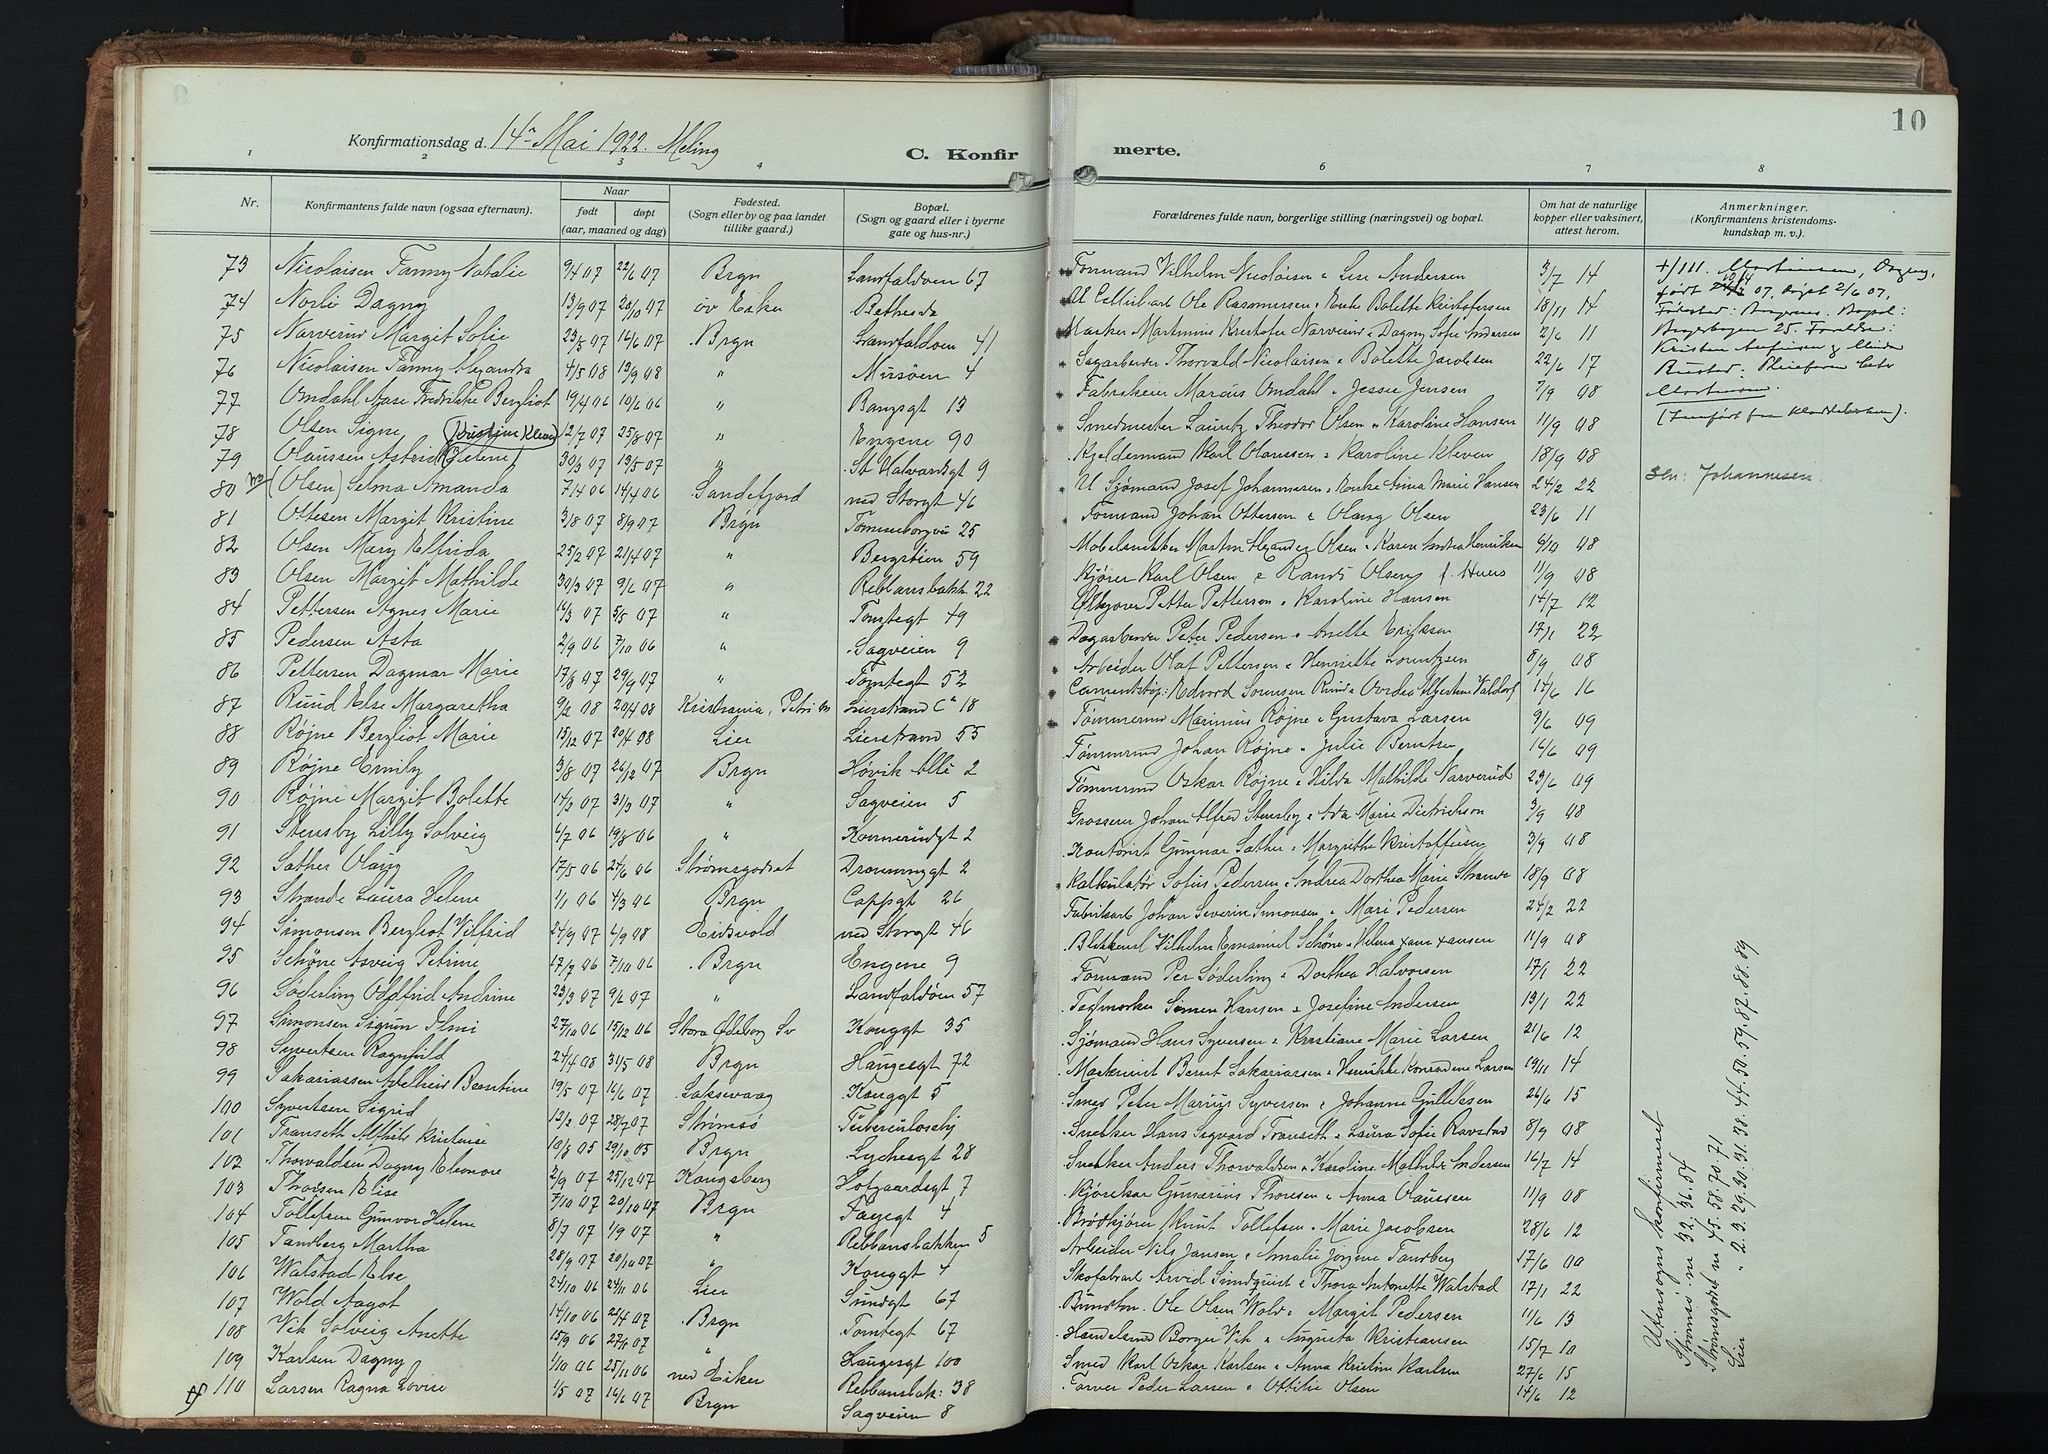 10
Konfirmationsdag d. 14de Mai 1922. Meling
C. Konfirmerte.
1 2 3 4 6 7 8
Nr. Konfirmantens fulde navn (ogsaa efternavn). Naar født døpt (aar, maaned og dag) Fødested. (Sogn eller by og paa landet tillike gaard.) Bopæl. (Sogn og gaard eller i byerne gate og hus-nr.) Forældrenes fulde navn, borgerlige stilling (næringsvei) og bopæl. Om hat de naturlige kopper eller vaksinert, attest herom. Anmerkninger. (Konfirmantens kristendomskundskap m. v.).
73 Nicolaisen Fanny Natalie 9/4 07 22/6 07 Brgn Landfaldøen 67 Formand Vilhelm Nicolaisen & Lise Andersen 3/7 14
74 Norli Dagny 13/9 07 20/10 07 öv Eiker Bethesda Ole Rasmussen & Enke Bolette Kristofersen 18/11 14
75 Narverud Margit Sofie 23/5 07 16/6 07 Brgn Landfaldøen 41 Martinius Kristofer Narverud & Dagny Sofie Andersen 2/6 11
76 Nicolaisen Fanny Alexandra 4/5 08 13/9 08 " Musöen 4 Sagarbeider Thorvald Nicolaisen & Bolette Jacobsen 22/6 17
77 Omdahl Aase Fredrikke Bergliot 19/4 06 10/6 06 " Bangsgt 13 Fabrikeier Marcus Omdahl & Jessie Jensen 7/9 08
78 Olsen Signe 12/7 07 25/8 07 " Engene 90 Smedmester Lauritz Theodor Olsen & Karoline Hansen 11/9 08
79 Olaussen Astrid (Helene) 30/3 07 13/5 07 " St Halvardsgt 9 Kjeldermand Karl Olaussen & Karoline Kleven 18/9 08
80 (Olsen) Selma Amanda 7/4 06 14/4 06 Sandefjord ned Storgt 46 U Sjømand Josef Johannesen & Enke Anna Marie Hansen 24/2 22 Johannesen.
81 Ottesen Margit Kristine 3/8 07 8/9 07 Brgn Tømmerborgvei 25 Formand Johan Ottersen & Olaug Olsen 23/6 11
82 Olsen Mary Elfrida 25/2 07 21/4 07 " Bergstien 59 Møbelsnekker Martin Alexander Olsen & Karen Andrea Henriksen 6/10 08
83 Olsen Margit Mathilde 30/3 07 9/6 07 " Rebbansbakk 22 Kjører Karl Olsen & Randi Olsen 11/9 08
84 Pettersen Agnes Marie 16/3 07 5/5 07 " Tomtegt 49 Ølkjører Petter Pettersen & Karoline Hansen 14/7 12
85 Pedersen Asta 2/9 06 7/10 06 " Sagveien 9 Dagarbeider Peter Pedersen & Anette Eriksen 17/1 22
86 Pettersen Dagmar Marie 17/8 07 29/9 07 " Tomtegt 52 Arbeider Olaf Pettersen & Henriette Lorentzen 8/9 08
87 Ruud Else Margaretha 9/2 08 20/4 08 Kristiania, Petri Lierstrand C 18 Edvard Sørensen Ruud & Albertine Valdorf 14/6 16
88 Røjne Bergliot Marie 15/12 07 20/4 08 Lier Lierstrand 55 Tømmermd Marinius Røjne & Gustava Larsen 9/6 09
89 Røjne Emily 3/8 07 26/12 07 Brgn Høvik Allé 2 Tømmermd Johan Røjne & Julie Berntsen 16/6 09
90 Røjne Margit Bolette 14/2 07 31/3 07 " Sagveien 5 Tømmermd Oskar Røjne & Hilda Mathilde Narverud 23/6 09
91 Stensby Lilly Solveig 6/7 06 19/8 06 " Kornerudgt 2 Grosserer Johan Alfred Stensby & Ada Marie Dietrichson 3/9 08
92 Sæther Olaug 17/5 06 24/6 06 Strømsgodset Dronninggt 2 Kontorist Gunnar Sæther & Margrethe Kristoffersen 3/9 08
93 Strande Laura Helene 1/1 06 4/3 06 Brgn Cappsgt 26 Kalkulatør Sofus Pedersen & Andrea Dorthea Marie Strande 18/9 08
94 Simonsen Bergliot Vilfrid 24/9 07 6/9 08 Eidsvold ned Storgt 46 Fabriksarb Johan Severin Simonsen & Mari Pedersen 24/2 22
95 Schöne Asveig Petrine 17/7 06 7/10 06 Brgn Engene 9 Vilhelm Emanuel Schöne & Helena Hansen 11/9 08
96 Søderling Oddfrid Andrine 23/3 07 9/6 07 " Landfaldöen 57 Formand Per Søderling & Dorthea Halvorsen 17/1 22
97 Simonsen Sigrun Ilmi 27/10 06 15/12 06 Stora Ödeborg Sv Konggt 35 Simen Hansen & Josefine Andersen 13/1 22
98 Syvertsen Ragnhild 24/4 08 31/5 08 Brgn Haugesgt 72 Sjømand Hans Syversen & Kristiane Marie Larsen 21/6 12
99 Sakariassen Adelheid Berntine 19/5 07 16/6 07 Laksevaag Konggt 5 Maskinist Bernt Sakariassen & Henrikke Konradine Larsen 19/11 14
100 Syvertsen Sigrid 13/2 07 28/7 07 Strømsö Tuberculosehj Smed Peter Marius Syversen & Johanne Gulliksen 26/6 15
101 Transeth Alfhild Kristense 10/8 05 29/10 05 Brgn Lychesgt 28 Snekker Hans Sigvard Transeth & Laura Sofie Ravstad 8/9 08
102 Thorvaldsen Dagny Eleonore 2/9 07 25/12 07 Kongsberg Hofgaardsgt 7 Snekker Anders Thorvaldsen & Karoline Mathilde Andersen 16/7 14
103 Thoresen Elise 7/10 07 20/10 07 Brgn Fayegt 4 Kjørekar Gunerius Thoresen & Anna Olaussen 11/9 08
104 Tollefsen Gunvor Helene 8/7 07 1/9 07 " Rebbansbakken 5 Brödkjörer Knut Tollefsen & Marie Jacobsen 28/6 12
105 Tandberg Martha 28/9 07 20/10 07 " Konggt 4 Arbeider Nils Jansen & Amalie Jørgine Tandberg 17/6 00
106 Walstad Else 24/10 06 24/11 06 Lier Sundgt 67 Skofabarb Arvid Sundquist & Thora Antonette Walstad 17/1 22
107 Wold Aagot 14/10 06 21/4 07 Brgn Tomtegt 67 Ole Olsen Wold & Margit Pedersen 11/6 13
108 Vik Solveig Anette 15/9 06 27/1 07 " Haugesgt 100 Handelsmd Borger Vik & Augusta Kristiansen 15/7 10
109 Karlsen Dagny 1/10 06 25/11 06 ned Eiker Rebbansbak: 38 Smed Karl Oskar Karlsen & Anna Kristine Karlsen 27/6 15
110 Larsen Ragna Lovise 1/5 07 16/6 07 Brgn Sagveien 8 Farver Peder Larsen & Ottilie Olsen 14/6 12
+/111. Martinsen, Dagny,
født 07, døpt 2/6 07,
Fødested: Bragernes. Bopæl:
25. Forældre:
Martinsen
(Innført fra Kladdeboken).
Utensogns konfirmeret
Strømsö: nr 32. 36. 54
Strømsgodset nr 45. 58. 70. 71
Lier " 2. 3. 29. 30. 31. 38. 44. 50. 59. 87. 88. 89